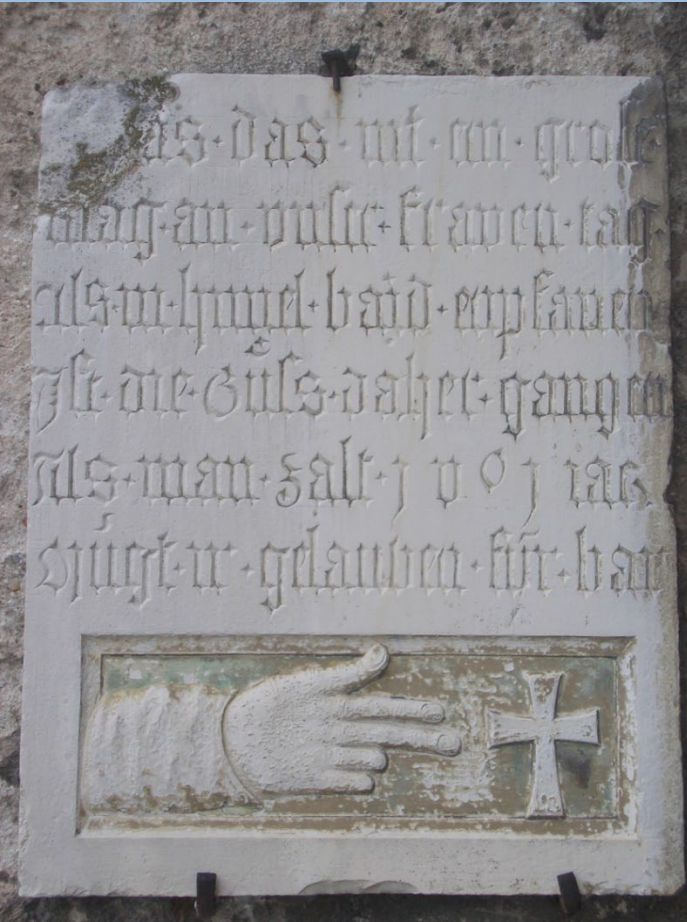 das · nit · an · grose
mag · an · vnser · frawen · tag
als · in · himel · baid · enpfanen
Ist · die · Güss · daher · gangen
Als · man · zalt · j v 0 j iar
Mügt · ir · gelauben · für · bar